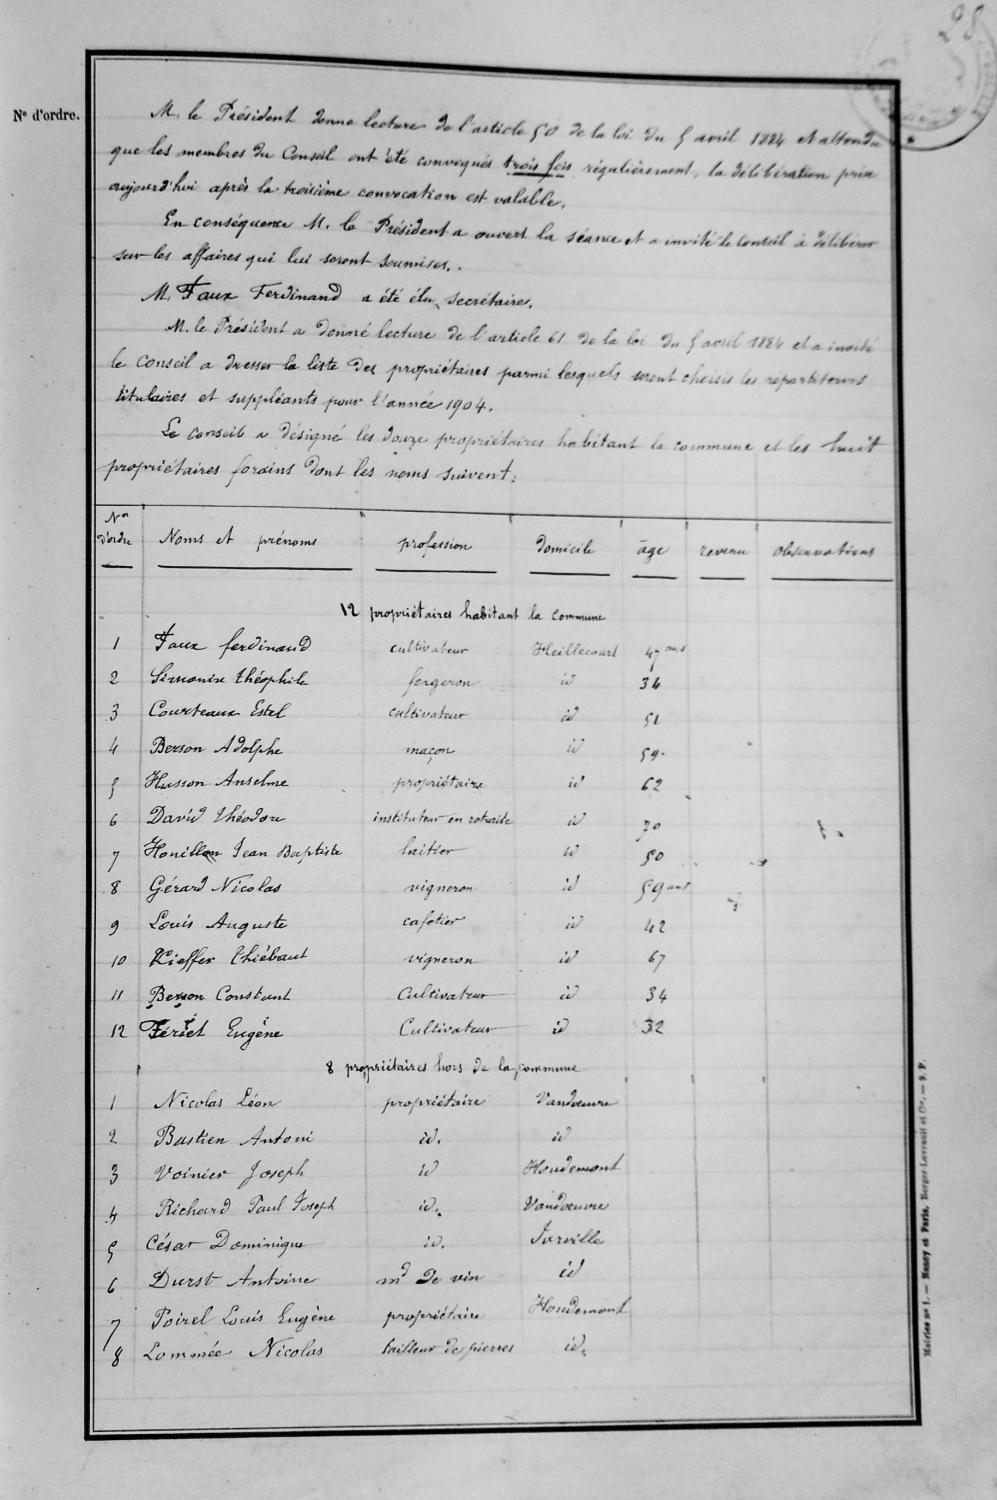 28
Nº d'ordre.
M. le Président donne lecture de l'article 50 de la loi du 5 avril 1884 et attendu
que les membres du Conseil ont été convoqués trois fois régulièrement, la délibération prise
aujourd'hui après la troisième convocation est valable.
En conséquence M. le Président a ouvert la séance et a invité le Conseil à délibérer
sur les affaires qui lui seront soumises.
M. Faux Ferdinand a été élu secrétaire.
M. le Président a donné lecture de l'article 61 de la loi du 5 avril 1884 et a invité
le Conseil a dresser la liste des propriétaires parmi lesquels seront choisis les répartiteurs
titulaires et suppléants pour l'année 1904.
Le conseil a désigné les douze propriétaires habitant la commune et les huit
propriétaires forains dont les noms suivent:
Nos d'ordre Noms et prénoms profession domicile âge revenu observations
12 propriétaires habitant la commune
1 Faux ferdinand cultivateur Heillecourt 47 ans
2 Simonin théophile forgeron id 34
3 Courteaux Estel cultivateur id 51
4 Berson Adolphe maçon id 59
5 Husson Anselme propriétaire id 62
6 David théodore instituteur en retraite id 70
7 Houillon Jean Baptiste laitier id 50
8 Gérard Nicolas vigneron id 59 ans
9 Louis Auguste cafetier id 42
10 Kieffer Thiébaut vigneron id 67
11 Berson Constant Cultivateur id 34
12 Fériet Eugène Cultivateur id 32
8 propriétaires hors de la commune
1 Nicolas Léon propriétaire Vandœuvre
2 Bastien Antoni id. id
3 Voinier Joseph id Houdemont
4 Richard Paul Joseph id. Vandœuvre
5 César Dominique id. Jarville
6 Durst Antoine md de vin id
7 Poirel Louis Eugène propriétaire Houdemont
8 Lommée Nicolas tailleur de pierres id.
Mairies nº 1. — Nancy et Paris, Berger-Levrault et Cie. — 9. P.